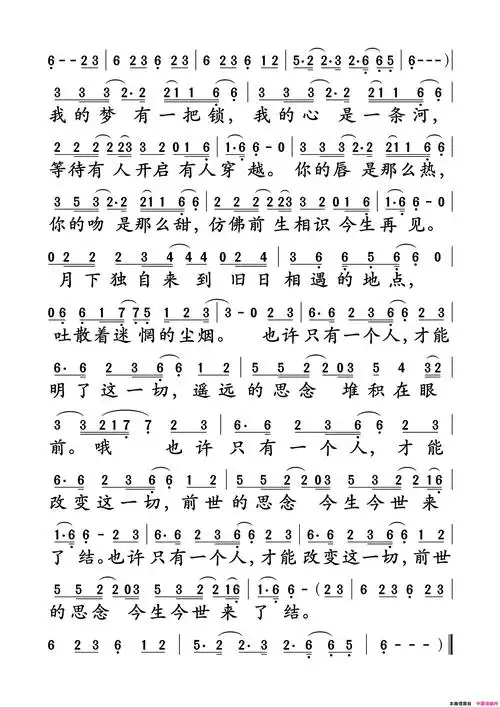 6--23 | 6 236 236 | 6 236 12 | 5·2 2·3 2·665 | 6---)
3 3 3 2·2 2116 6 | 3 3 3 2·2 2116 6
我的梦 有一把锁, 我的心 是一条河,
2 2 2 2 223 3 2 01 6 | 1·66-0 | 3 3 3 2·2 211 6 6
等待有人开启有人穿 越。 你的唇 是那么热,
3 5 3 2·2 211 6 6 | 2 2 2 2 223 3 01 6 | 1·66-0
你的吻 是那么甜, 仿佛前生相识今生再 见。
02 2 2 3 4 4 4 | 02 4 2 4 | 3 6 6 5 6 6 0
月下独自来到 旧日相遇的地点,
06 6 6 1 775 1 2 3 | 3-0 23 | 6· 6 2 3 6 6 23
吐散着迷惘的尘烟。 也许只有一个人, 才能
6· 2 2 3 6 6 1 2 | 5 5 2 203 5 4 32
明了这一切, 遥远的思念 堆积在眼
3 3217 7 2 3 | 6· 6 2 3 6 6 2 3
前。哦 也许只有一个人, 才能
6· 2 2 3 6 6 1 2 | 5 5 2 203 3 5 3 216
改变这一切, 前世的思念 今生今世来
1·66-23 | 6· 6 2 3 6 6 2 3 | 6· 2 2 3 6 6 1 2
了结。也许只有一个人, 才能改变这一切, 前世
5 5 2 203 3 5 3 216 | 1·66-(23 | 6 236 236
的思念 今生今世来 了结。
6 2 3 6 1 2 | 5· 2 2·3 2·6 65 | 6---)
本曲谱源自 中国词曲网